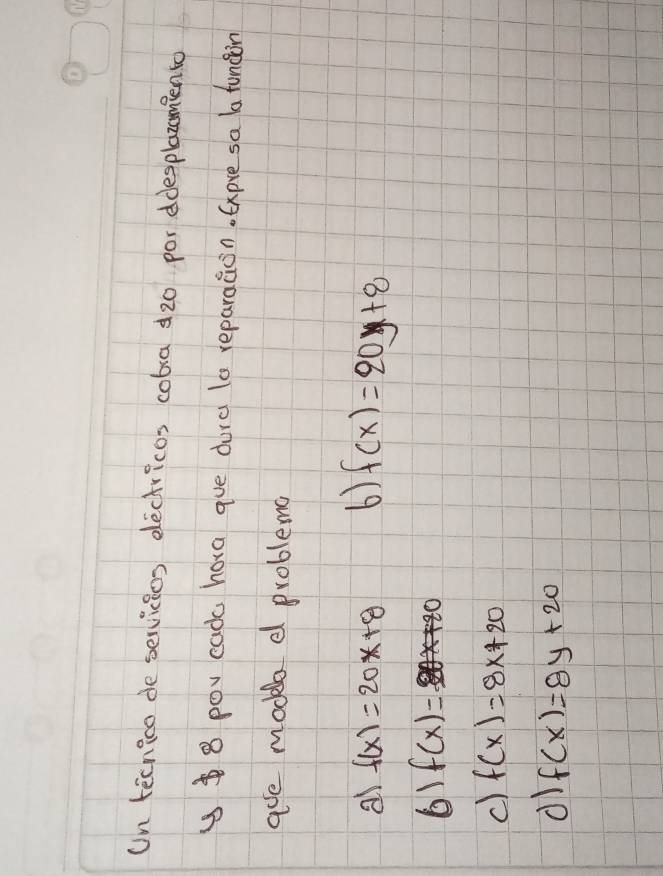 Un técnico de servicios eléctricos cobra $20 por ddesplazamiento
y $8 por cada hora que dura la reparación. Expresa la función
que modela el problema
a) f(x)=20x+8 b) f(x)=20y+8
b) f(x)=
c) f(x)=8x+20
d) f(x)=8y+20